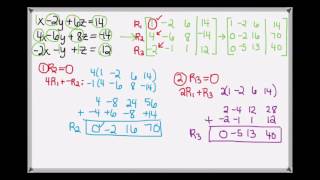 x-2y+6z=14
4x-6y+8z=-14
-2x-y+z=12
R₁ [1 -2 6 | 14] [1 -2 6 | 14]
R₂ [4 -6 8 | -14] [0 -2 16 | 70]
R₃ [-2 -1 1 | 12] [0 -5 13 | 40]
① R₂=0
4R₁+-R₂=
4(1 -2 6 14)
-1(4 -6 8 -14)
4 -8 24 56
+ -4 +6 -8 +14
R₂ 0 -2 16 70
② R₃=0
2R₁+R₃
2(1 -2 6 14)
2 -4 12 28
+ -2 -1 1 12
R₃ 0 -5 13 40